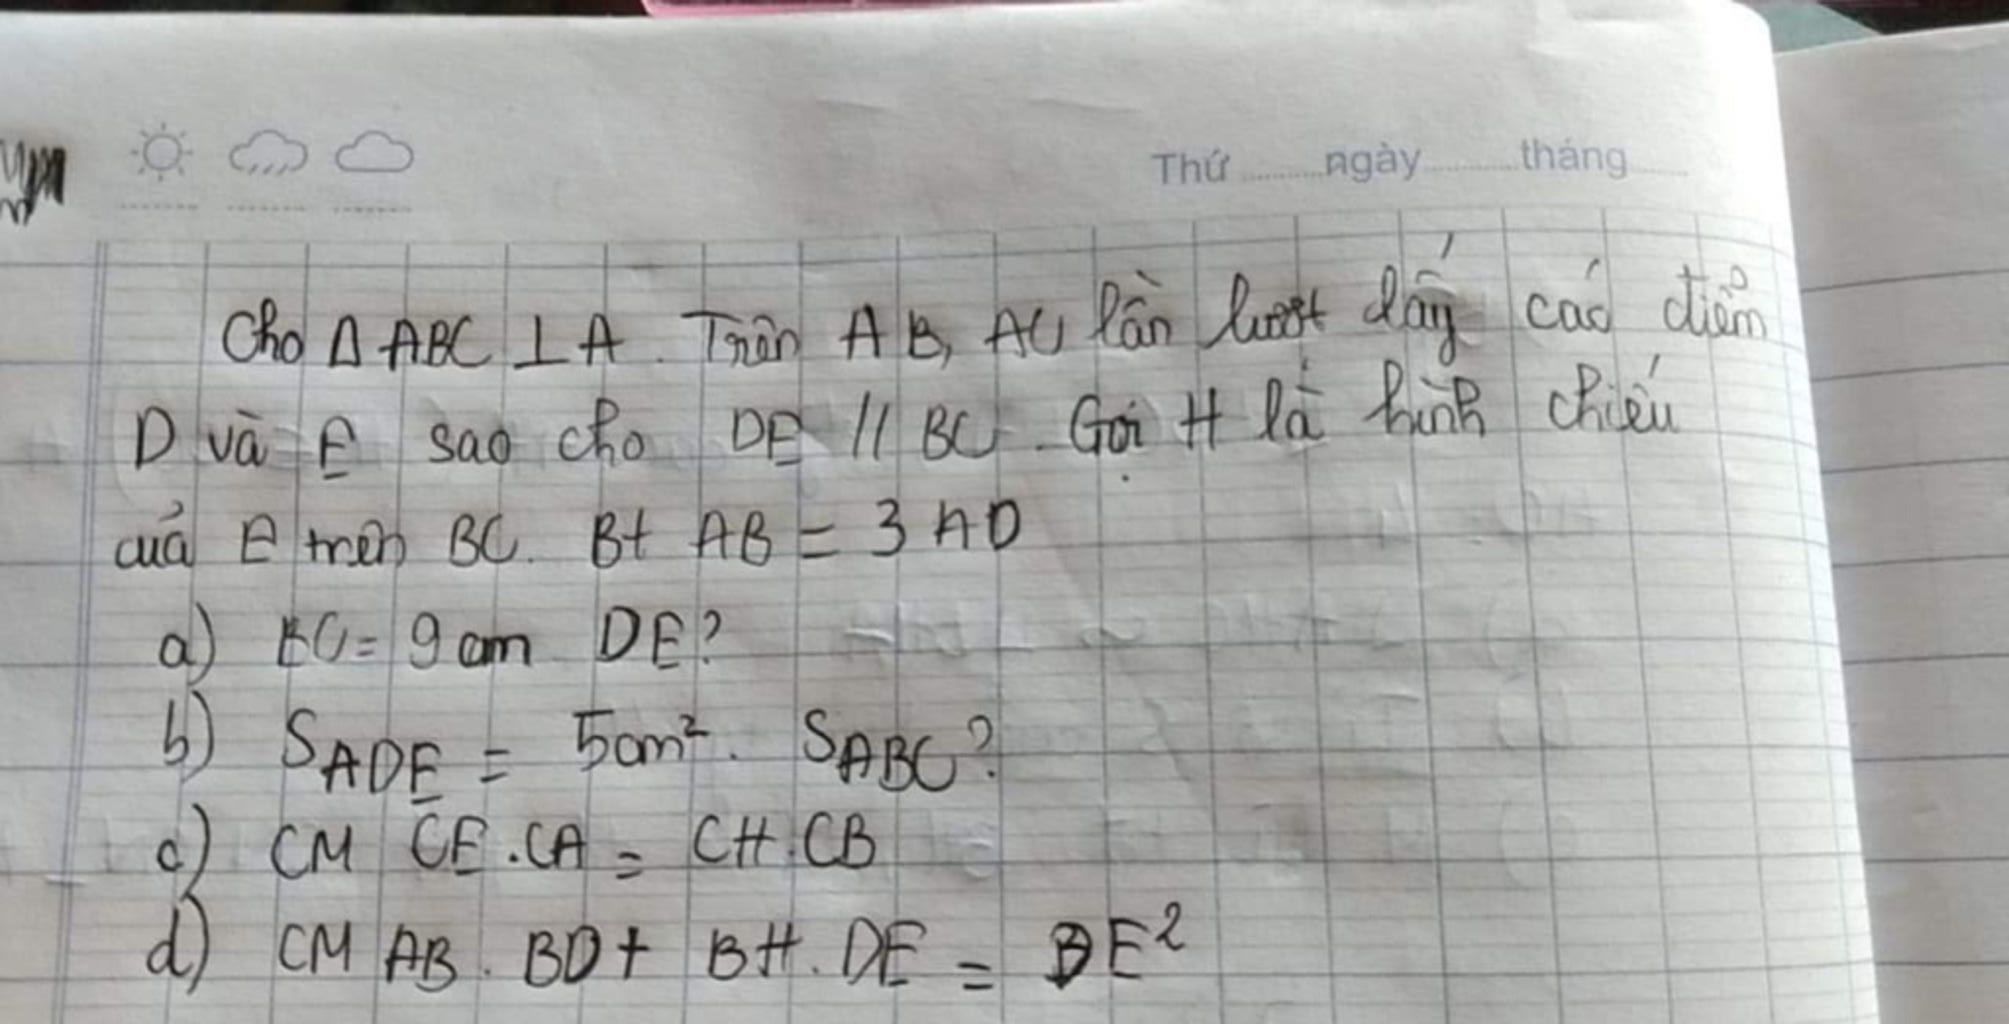 Thứ ........ngày........tháng......
Cho Δ ABC ⊥ A. Trên AB, AC lần lượt lấy các điểm
D và E sao cho DE // BC. Gọi H là hình chiếu
của E trên BC. Bt AB = 3 AD
a) BC = 9 cm DE?
b) S_ADE = 5cm². S_ABC?
c) CM CE.CA = CH.CB
d) CM AB.BD + BH.DE = BE²